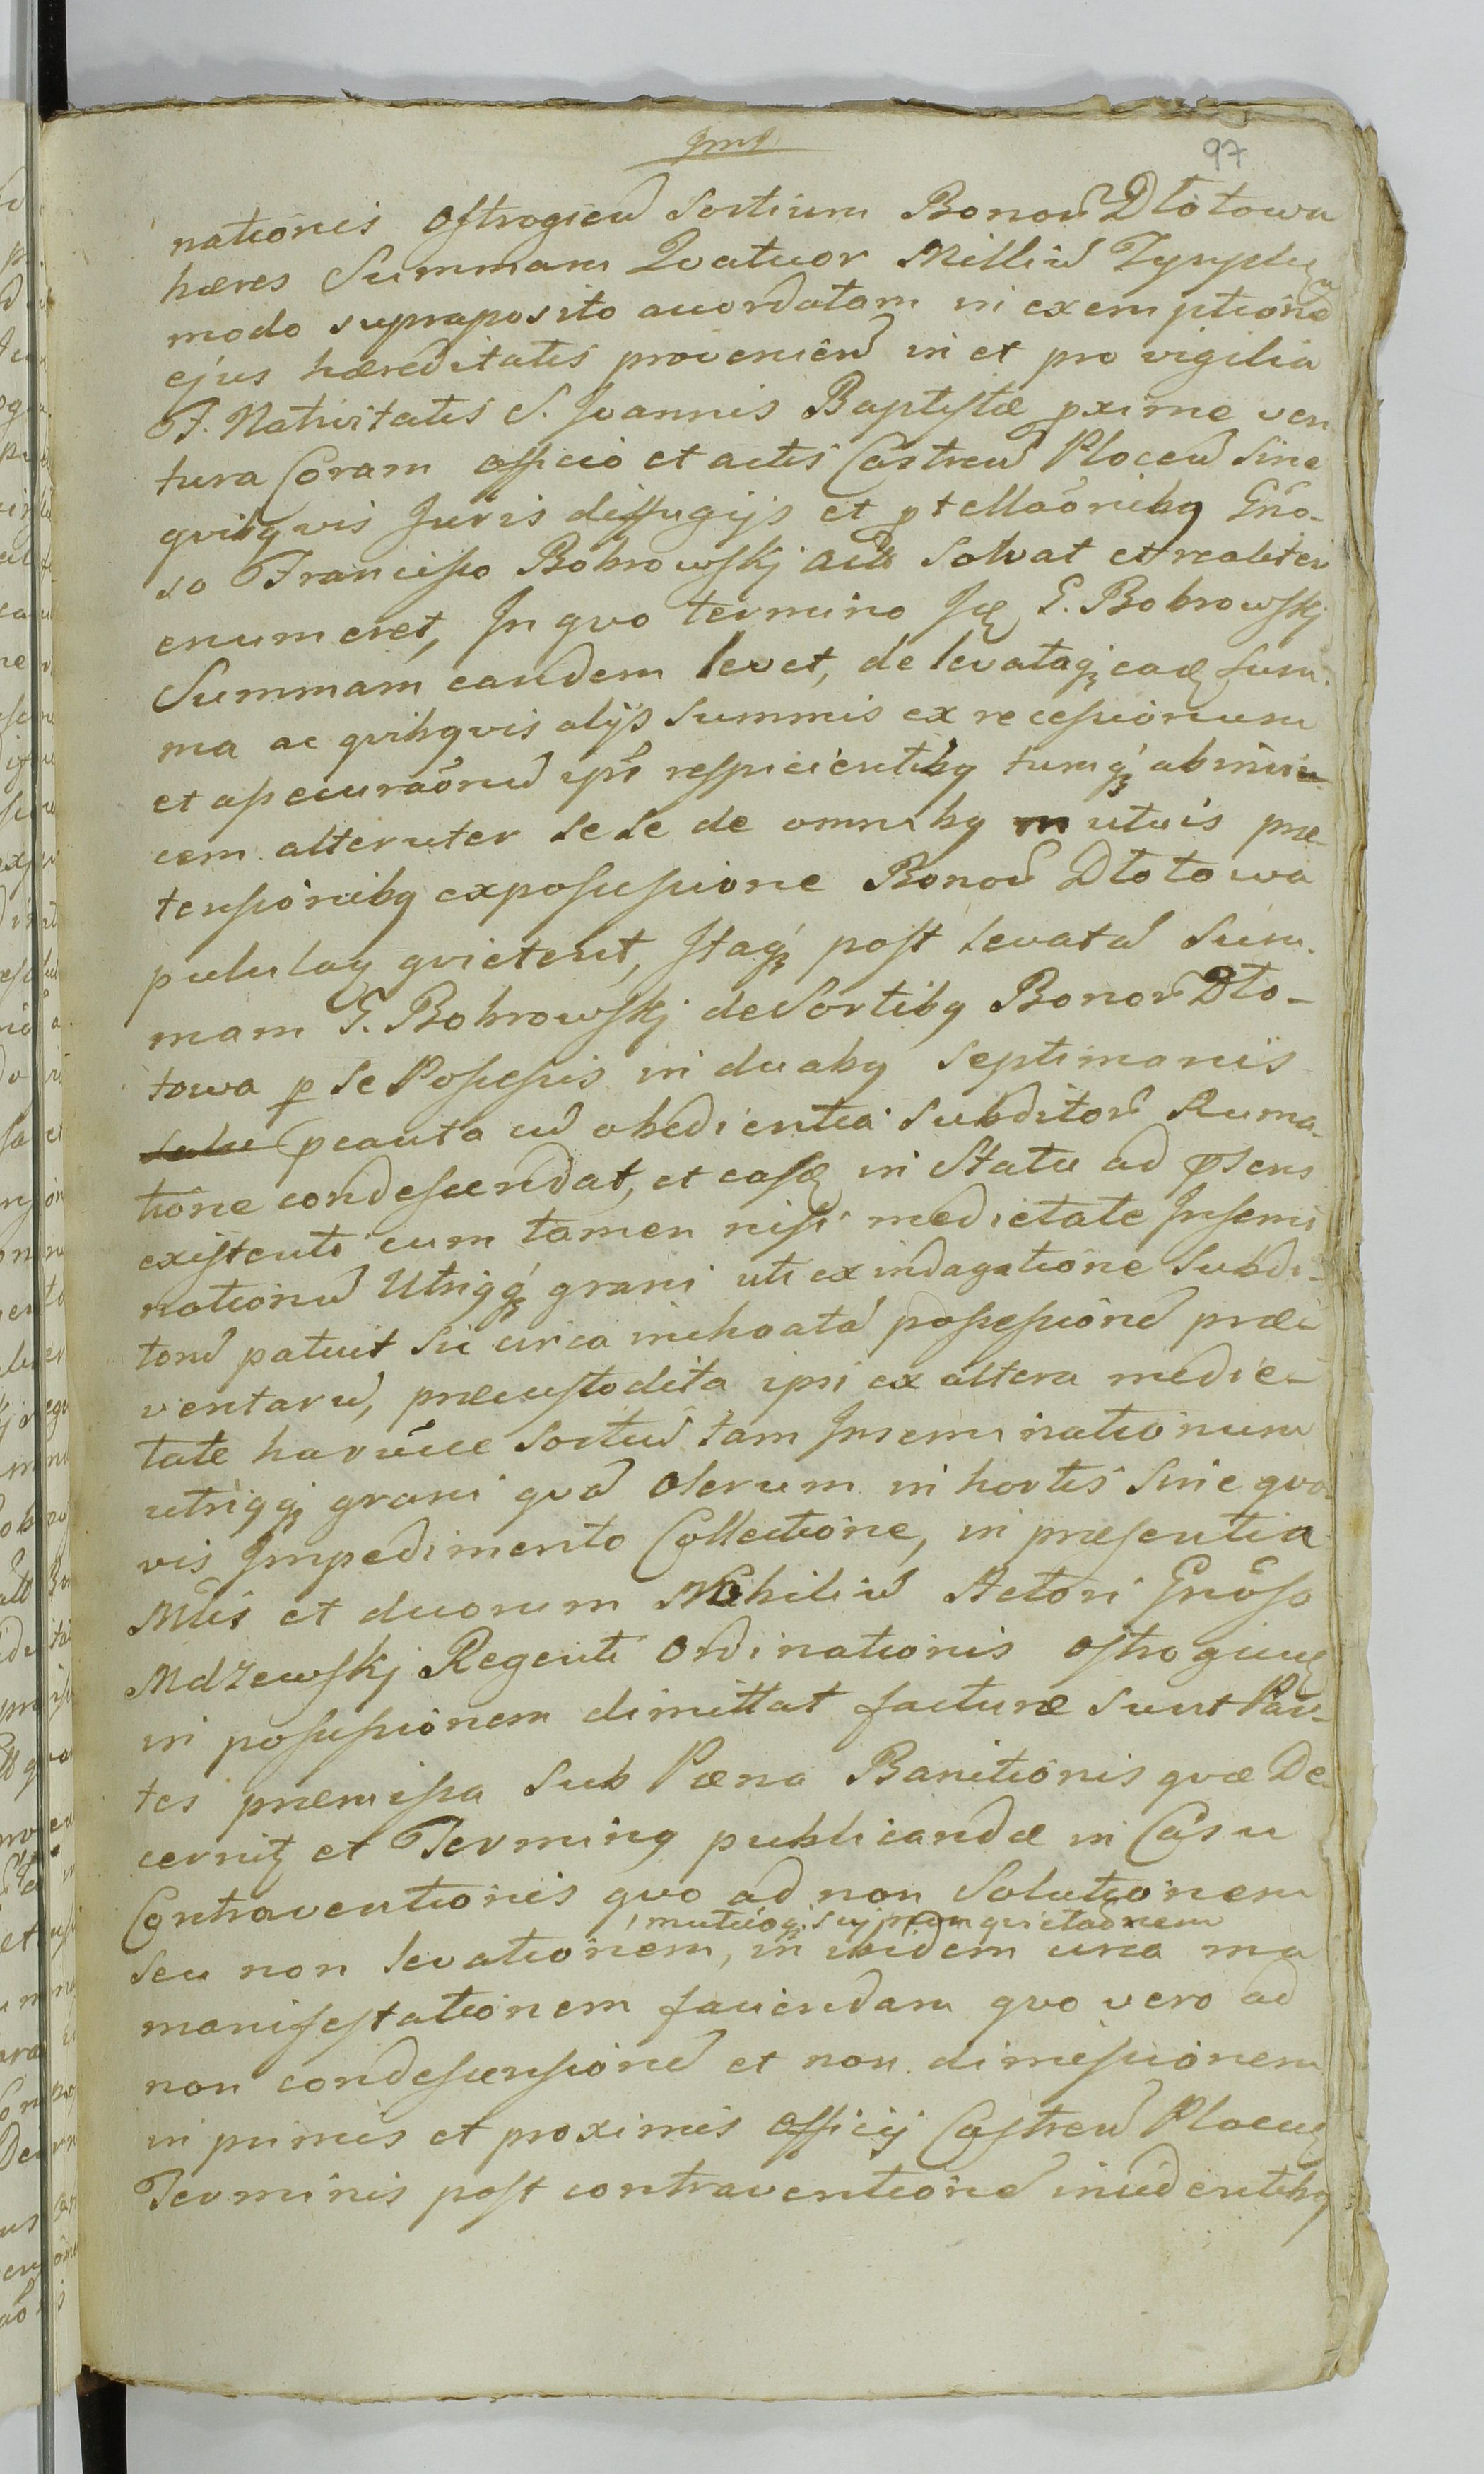 97
nationis ostrogien̄ Sortium Bonor̄ Dłotowa
hæres Summam Qvatuor Milliū Tymph
modo supraposito accordatam in exemptionē
ejus hæreditatis provenien̄ in et pro vigilia
F. Nativitatis S. Joannis Baptistæ pxime ven
tura Coram officio et actis Castren̄ Plocen̄ sine
qvibqvis Juris diffugijs et ptellaōnibq Gn̄o-
so Francisco Bobrowskj solvat et realiter
enumeret, In qvo termino G. Bobrowskj
Summam eandem levet, de levataqȝ eadȩ sum-
ma ac qvibqvis alijs Summis ex recessionum
et assecuraōnū ipsi respicientibq tumqȝ abinvi
cem alteruter sese de omnibq mutuis præ-
tensionibq expossessione Bonor̄ Dłotowa
pululaņ qvietent, Itaqȝ post levatā Sum-
mam G. Bobrowskj de Sortibq Bonor̄ Dło-
towa p se Possessis in duabq septimanis
peracuta cū obedientia Subditor̄ Ruma-
tione condescendat, et easdȩ in Statu ad psens
existenti cum tamen nisi medietate Insemi
nationū Utriqqȝ grani uti ex indagatione Subdi-
torū patuit sii circa inchoatā possessionē præi
ventarū, præcustodita ipsi ex altera medie-
tate harūce Sortiū tam Inseminationum
utriqqȝ grani qvā olerum in hortis sine qvo
vis Impedimento Collectione, in præsentia
Mlis et duorum Nobiliū Actori Gnōso
Mdzewskj Regenti Ordinationis ostrogien̄
in possessionem dimittat facturæ sunt Par-
tes præmissa sub Pæna Banitionis qvæ De
cerniţ et Terminq publicandæ in Casu
Contraventionis qvo ad non Solutionem
seu non levationem, in ibidem circa ma
manifestationem faciendam qvo vero ad
non condescensionē et non dimissionem
in primis et proximis officij Castren̄ Plocen̄
Terminis post contraventionē incidentibq